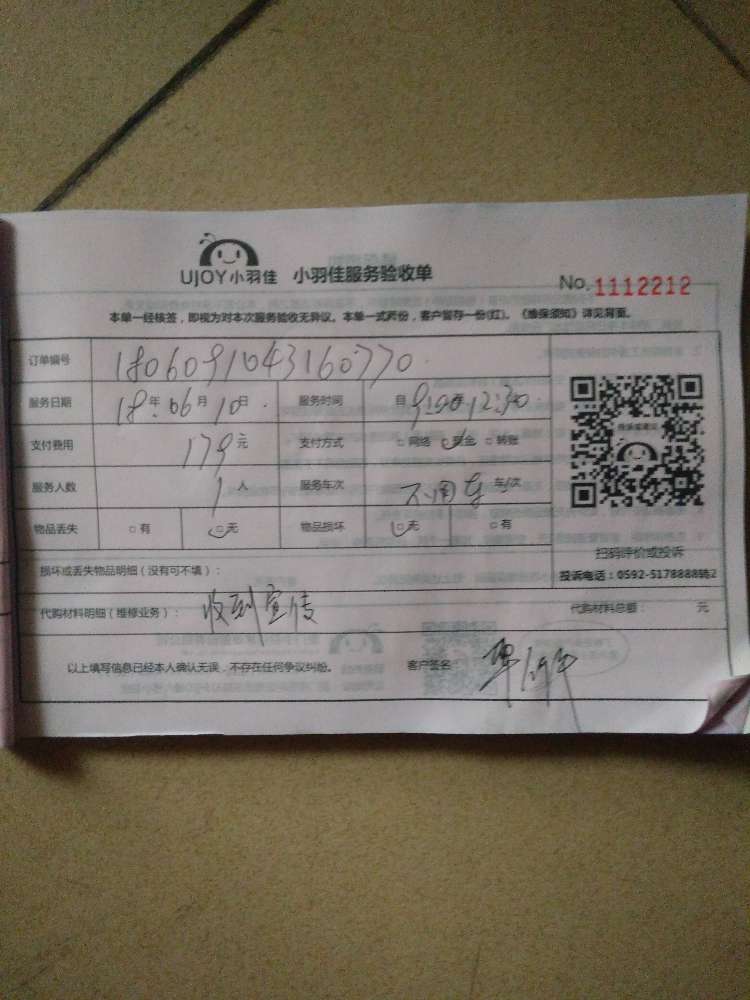 UJOY小羽佳 小羽佳服务验收单 No. 1112212
本单一经核签，即视为对本次服务验收无异议。本单一式两份，客户暂存一份(红)。《维保须知》详见背面。
订单编号 1806091043160770
服务日期 18年06月10日 服务时间 自 9:00至12:30
支付费用 179元 支付方式 □网络 □现金 □转账
服务人数 1人 服务车次 不用车 车/次
物品丢失 □有 □无 物品损坏 □无 □有
扫码评价或投诉
损坏或丢失物品明细（没有可不填）：
投诉电话：0592-5178888转2
代购材料明细（维修业务）：收到宣传 代购材料总额： 元
以上填写信息已经本人确认无误，不存在任何争议纠纷。 客户签名：